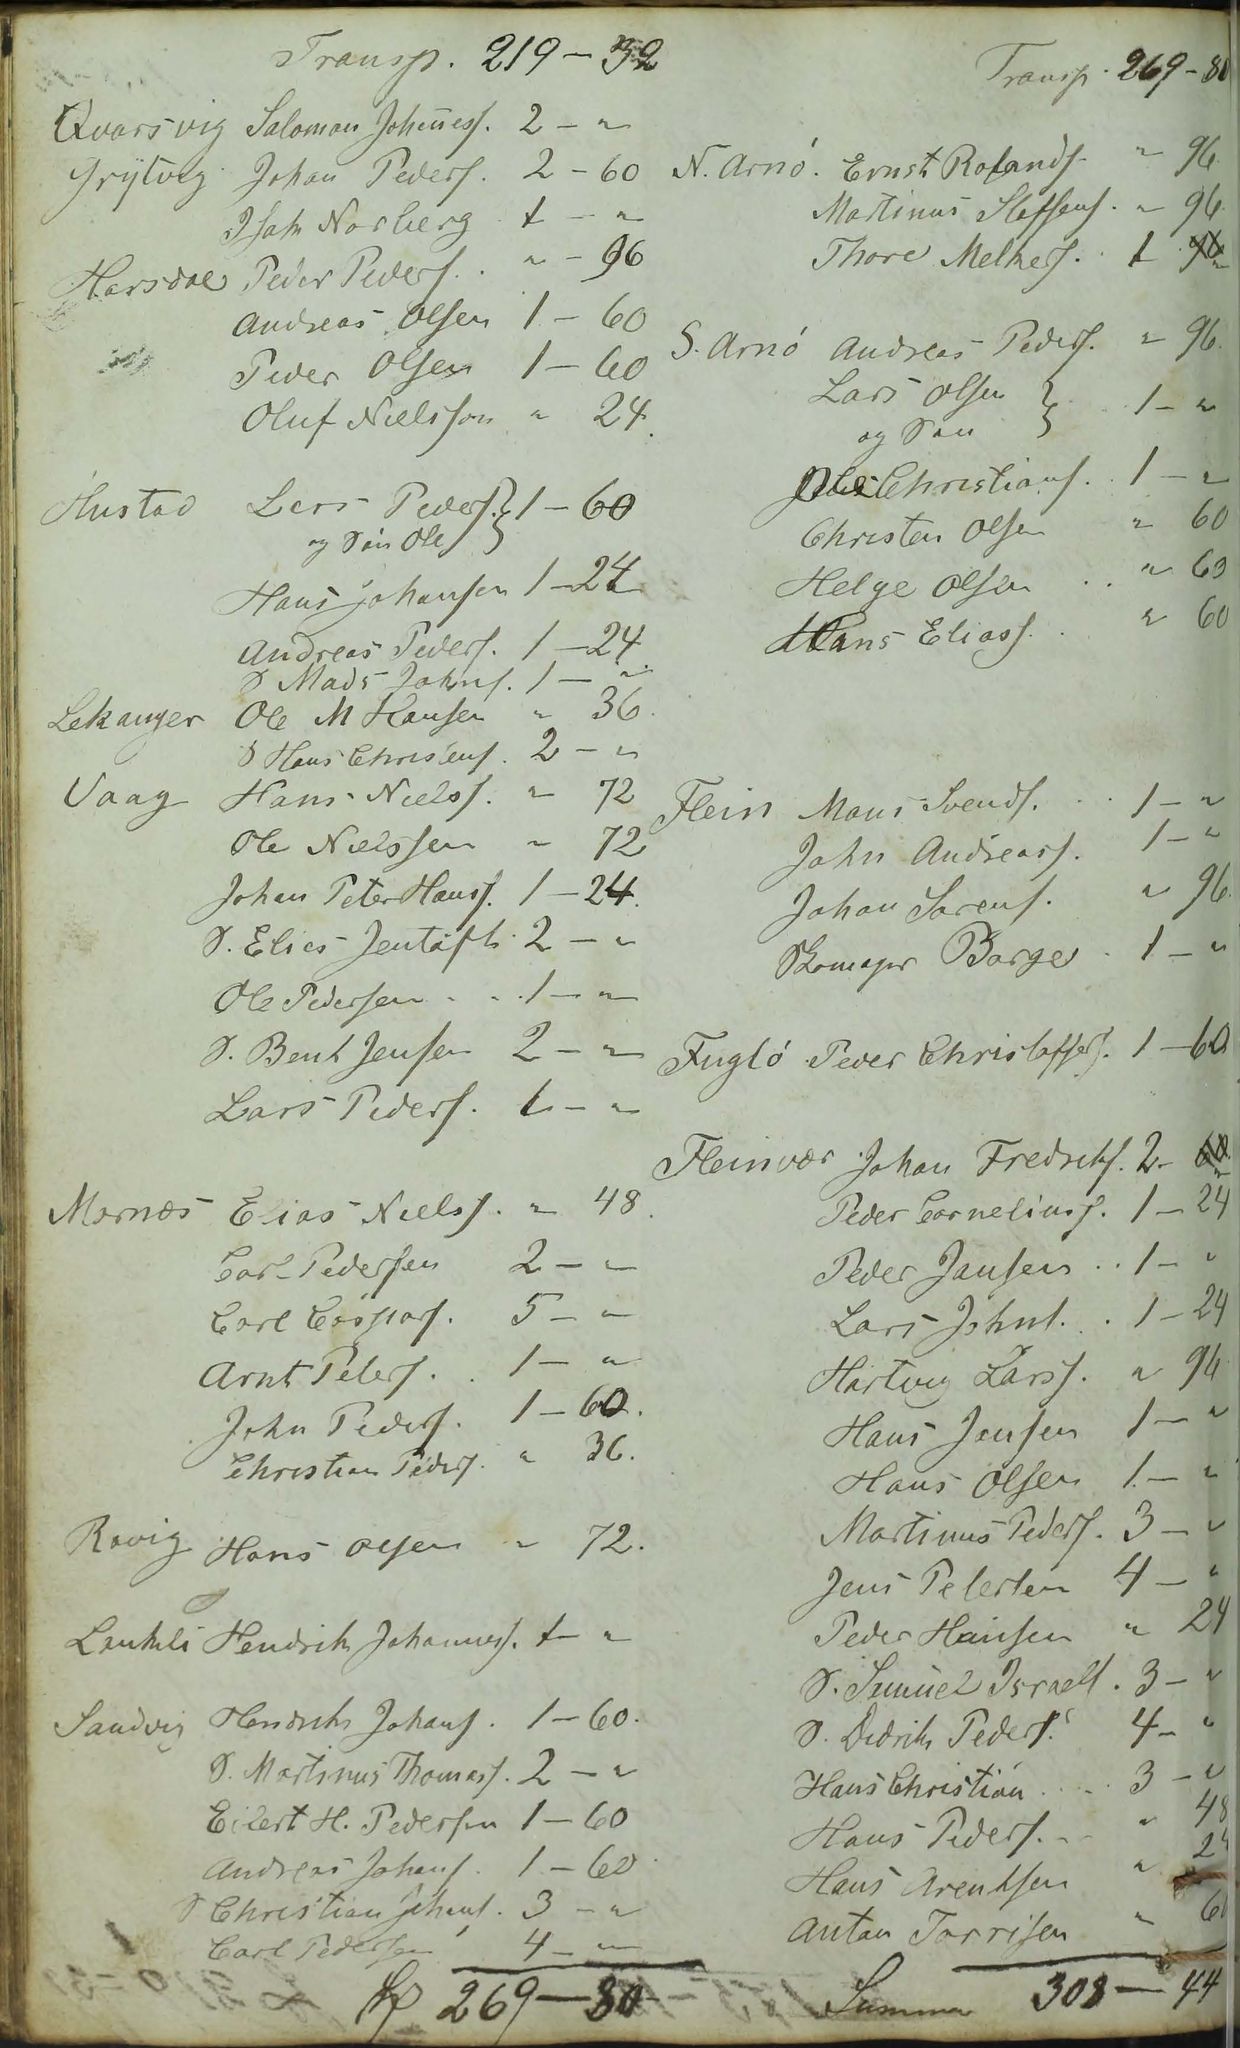 Transp. 219 - 32
Qvarsvig Salomon Johansf. 2 - "
Grytvig Johan Pedersf. 2 - 60
Isak Norberg 1 - "
Harsdal Peder Pedersf. " - 96
Andreas Olsen 1 - 60
Peder Olsen 1 - 60
Oluf Nielsson " 24.
Hustad Lars Pedersf. } 1 - 60
og Søn Ole
Hans Johansen 1 - 24
Andreas Pedersf. 1 - 24
D Mads Johnsf. 1 - "
Lekanger Ole M Hansen " 36.
D Hans Chrisensf. 2 - "
Vaag Hans Nielsf. " 72
Ole Nielssen " 72
Johan Peter Hansf. 1 - 24.
D. Elias Jentoft 2 - "
Ole Pedersen . . 1 - "
D. Bent Jensen 2 - "
Lars Pedersf. 1 - "
Mornæs Elias Nielsf. " 48.
Carl Pedersen 2 - "
Carl Casparsf. 5 - "
Arnt Petersf. . 1 - "
John Pedersf. 1 - 60.
Christian Pedersf. " 36.
Ravig Hans Olsen " 72.
Hendrik Johannesf. 1 - "
Sandvig Hendrik Johansf. 1 - 60.
D. Martinus Thomasf. 2 - "
Eilert H. Pedersen 1 - 60
Andreas Johansf. 1 - 60.
D Christian Johansf. 3 - "
Carl Pedersen 4 - "
269 - 80
Transp. 269 - 80
N. Arnö. Ernst Rolandsf. " 96
Martinus Steffensf. " 96.
Thore Melkersf. . 1 "
S. Arnö Andreas Pedersf. " 96.
Lars Olsen } 1 - "
og Søn
Christiansf. . 1 - "
Christen Olsen " 60
Helge Olsen . . " 60
Hans Eliasf. . " 60
Flein Mons Svendsf. . . 1 - "
John Andreasf. 1 - "
Johan Sørensf. " 96.
Skomager Borge . 1 - "
Fuglö Peder Christoffersf. 1 - 60
Fleinvær Johan Fredriksf. 2 - "
Peder Corneliusf. 1 - 24
Peder Jansen . . 1 - "
Lars Johnsf. . 1 - 24
Hartvig Larsf. " 96
Hans Jensen 1 - "
Hans Olsen 1 - "
Martinus Pedersf. 3 - "
Jens Petersen 4 - "
Peder Hansen " 24
D. Samuel Israelsf. 3 - "
D. Didrik Pedersf. 4 - "
Hans Christian . . . 3 - "
Hans Pedersf. . . " 48
Hans Arentsen " 24
Antan Torrisen " 60
Summa 308 - 44